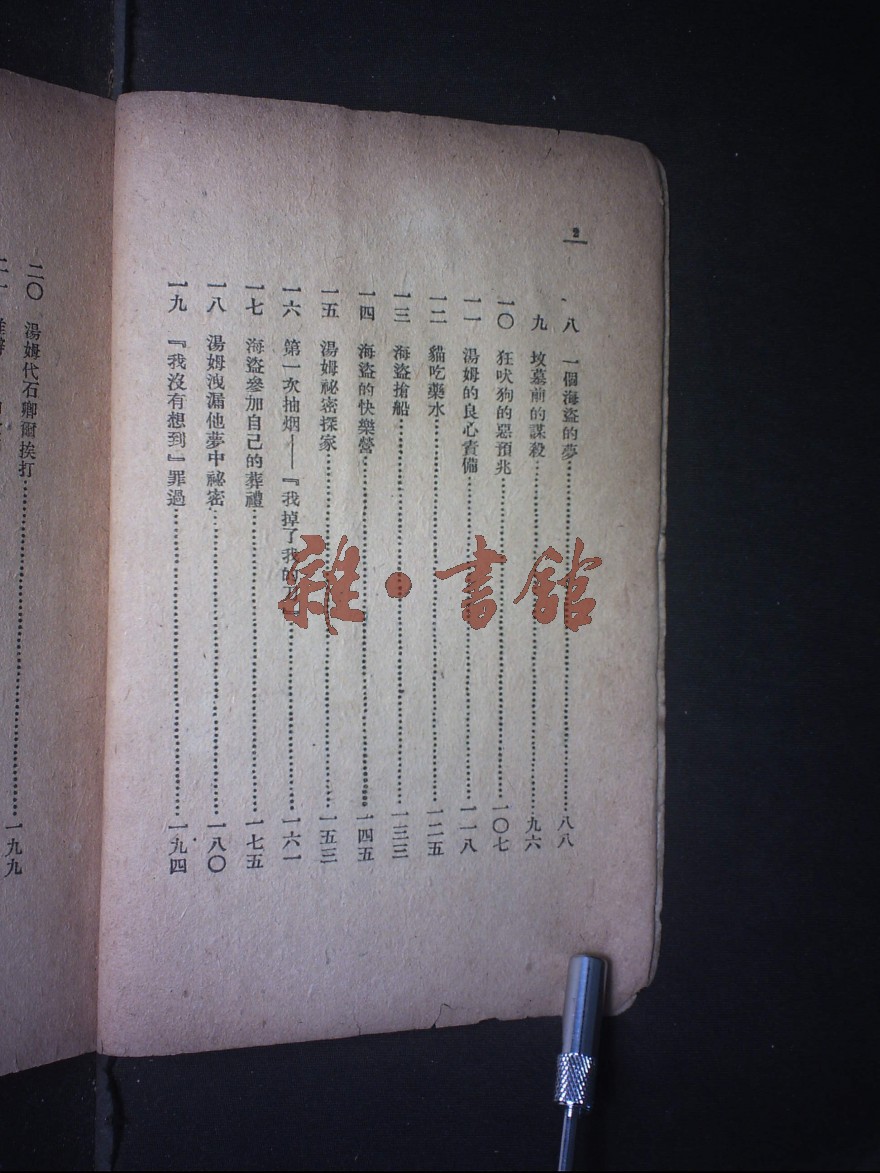 2
八 一個海盜的夢……八八
九 坟墓前的謀殺……九六
一〇 狂吠狗的惡預兆……一〇七
一一 湯姆的良心責備……一一八
一二 貓吃藥水……一二五
一三 海盜搶船……一三三
一四 海盜的快樂營……一四五
一五 湯姆祕密探家……一五三
一六 第一次抽烟——『我掉了我的刀』……一六一
一七 海盜參加自己的葬禮……一七五
一八 湯姆洩漏他夢中祕密……一八〇
一九 『我沒有想到』罪過……一九四
二〇 湯姆代石卿爾挨打……一九九
二一
雜·書館